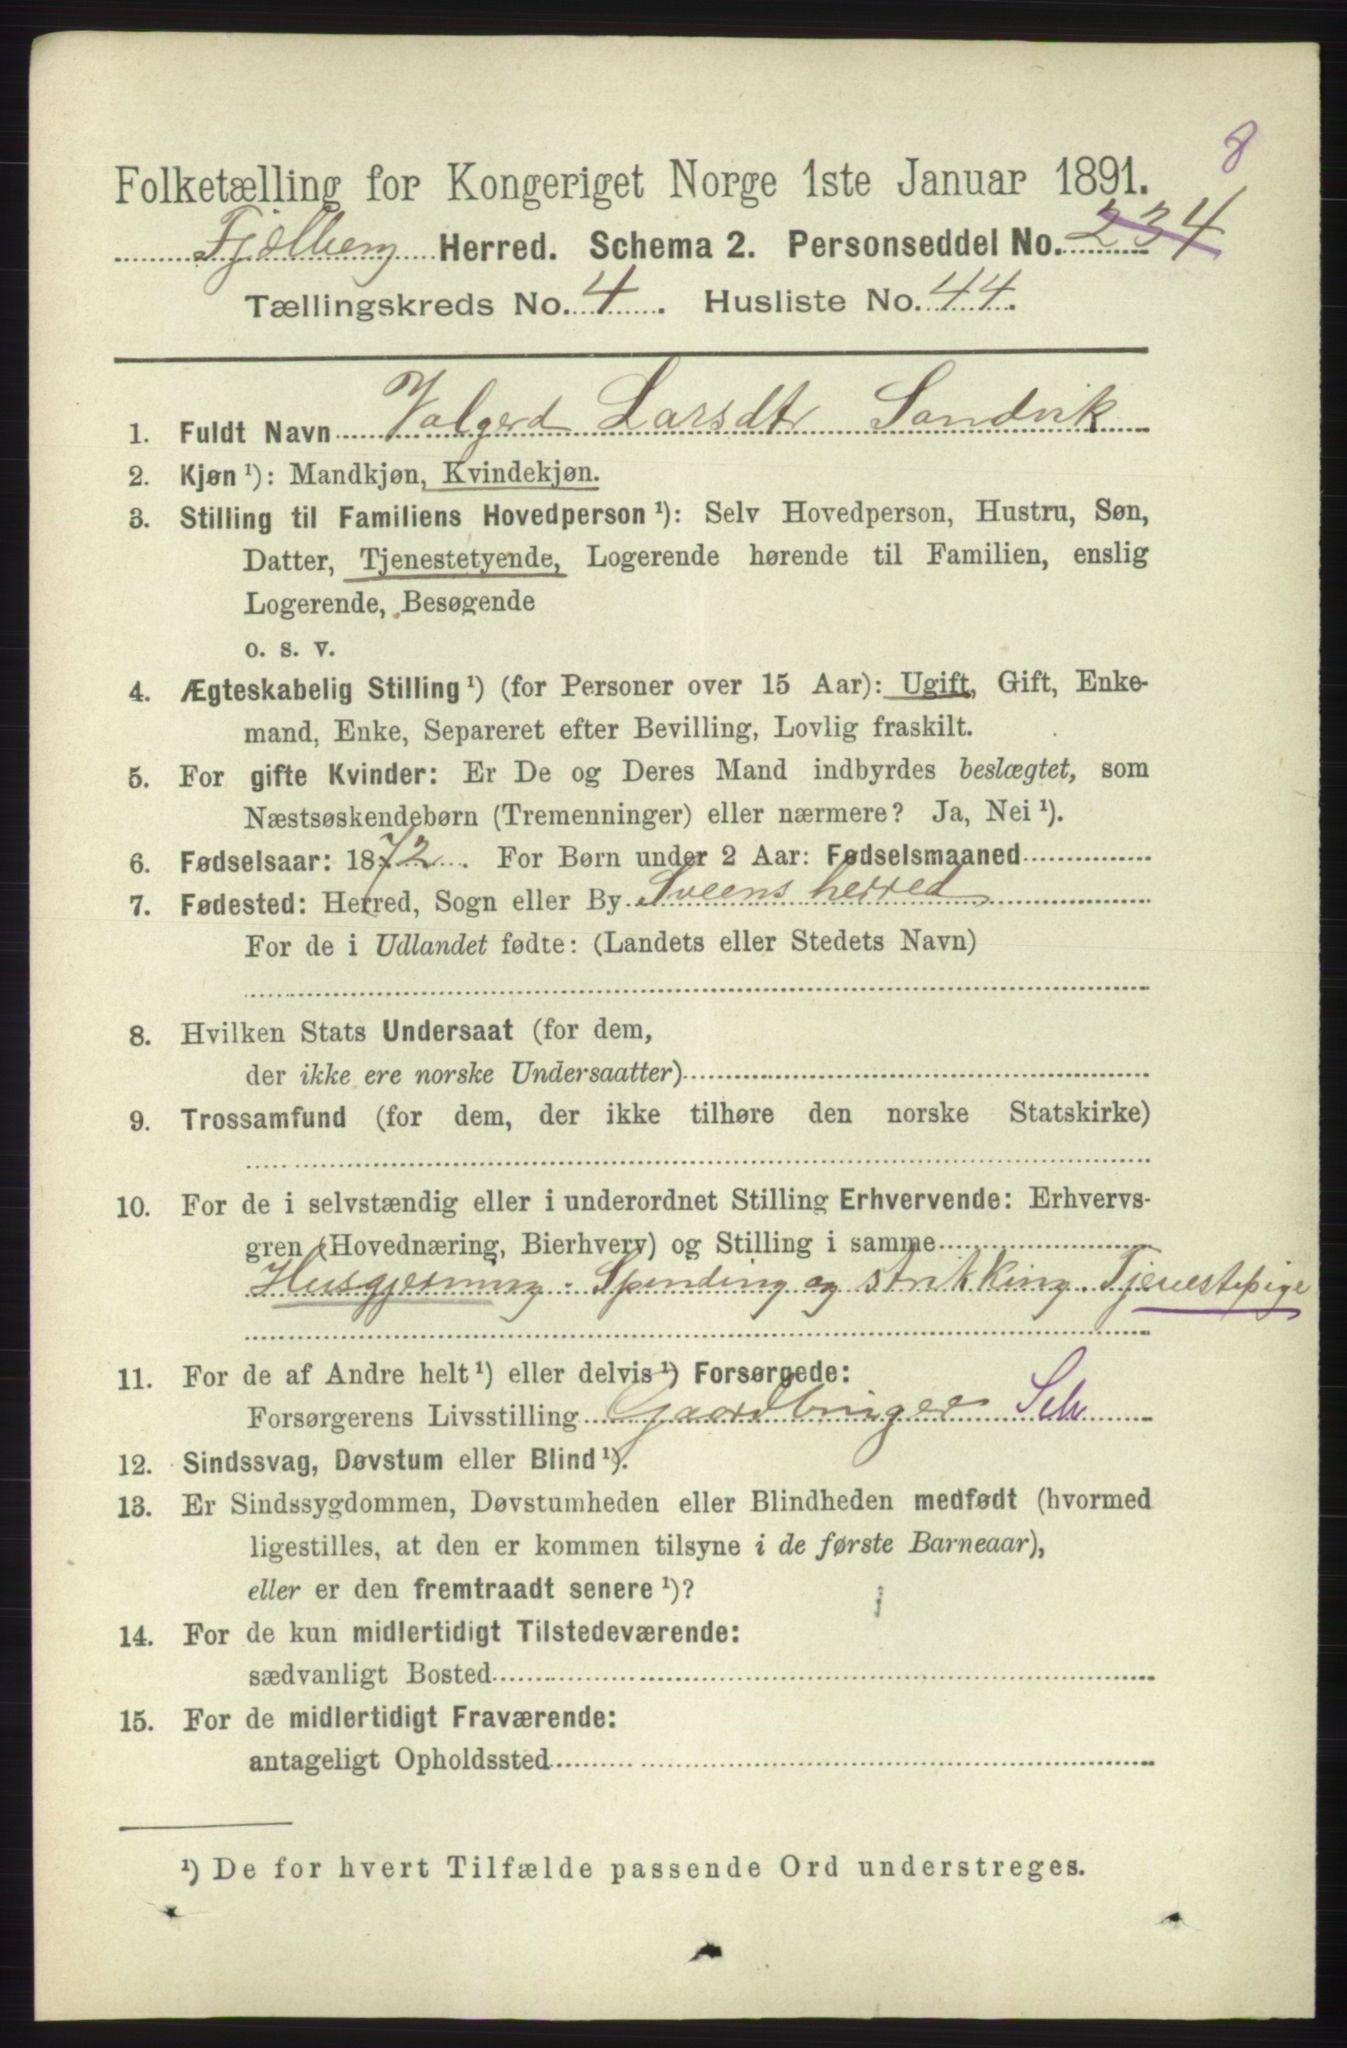 8
Folketælling for Kongeriget Norge 1ste Januar 1891.
Fjelberg Herred. Schema 2. Personseddel No. 234
Tællingskreds No. 4. Husliste No. 44.
1. Fuldt Navn Valgerd Larsdtr Sandvik
2. Kjøn ¹): Mandkjøn, Kvindekjøn.
3. Stilling til Familiens Hovedperson ¹): Selv Hovedperson, Hustru, Søn,
Datter, Tjenestetyende, Logerende hørende til Familien, enslig
Logerende, Besøgende
o. s. v.
4. Ægteskabelig Stilling ¹) (for Personer over 15 Aar): Ugift, Gift, Enke-
mand, Enke, Separeret efter Bevilling, Lovlig fraskilt.
5. For gifte Kvinder: Er De og Deres Mand indbyrdes beslægtet, som
Næstsøskendebørn (Tremenninger) eller nærmere? Ja, Nei ¹).
6. Fødselsaar: 1872. For Børn under 2 Aar: Fødselsmaaned
7. Fødested: Herred, Sogn eller By Sveens herred
For de i Udlandet fødte: (Landets eller Stedets Navn)
8. Hvilken Stats Undersaat (for dem,
der ikke ere norske Undersaatter)
9. Trossamfund (for dem, der ikke tilhøre den norske Statskirke)
10. For de i selvstændig eller i underordnet Stilling Erhvervende: Erhvervs-
gren (Hovednæring, Bierhverv) og Stilling i samme
Husgjerning. Spinding og strikking. Tjenestepige
11. For de af Andre helt ¹) eller delvis ¹) Forsørgede:
Forsørgerens Livsstilling Gaardbruger Selv
12. Sindssvag, Døvstum eller Blind ¹).
13. Er Sindssygdommen, Døvstumheden eller Blindheden medfødt (hvormed
ligestilles, at den er kommen tilsyne i de første Barneaar),
eller er den fremtraadt senere ¹)?
14. For de kun midlertidigt Tilstedeværende:
sædvanligt Bosted
15. For de midlertidigt Fraværende:
antageligt Opholdssted
¹) De for hvert Tilfælde passende Ord understreges.